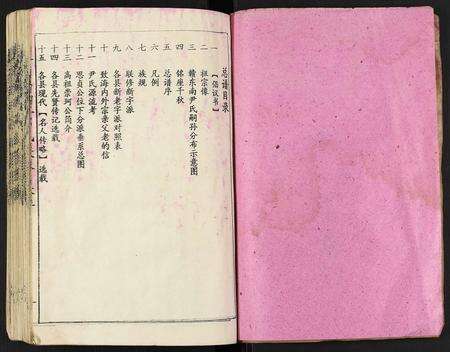 总谱目录
【倡议书】
一
二 祖宗像
三 赣东南尹氏嗣孙分布示意图
四 锦座千秋
五 总谱序
六 凡例
七 族规
八 联修新字派
九 各县新老字派对照表
十 致海内外宗亲父老的信
十一 尹氏源流考
十二 思贞公位下分派垂系总图
十三 高祖崇珂公简介
十四 各县先贤传记选载
十五 各县现代【名人传略】选载